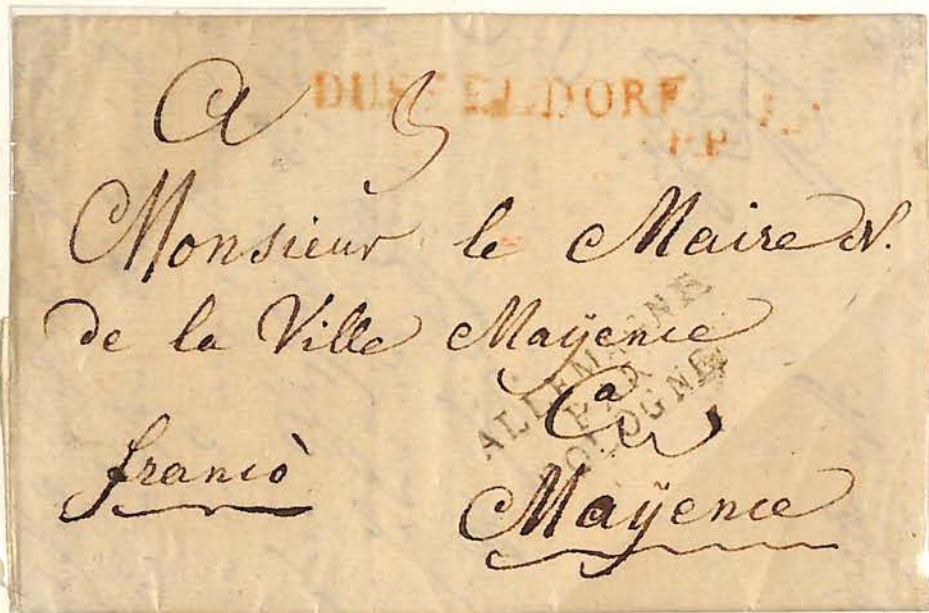 DUSSELDORF
A
P.P.
Monsieur le Maire
de la Ville Maÿence
ALLEMAGNE
PAR
COLOGNE
a
francò
Maÿence